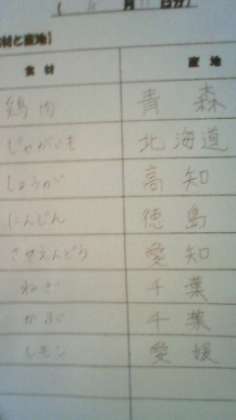 月 日分）
材と産地】
食材 産地
鶏肉 青森
じゃがいも 北海道
しょうが 高知
にんじん 徳島
さやえんどう 愛知
ねぎ 千葉
かぶ 千葉
レモン 愛媛